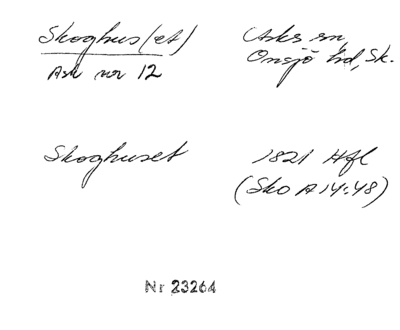 Skoghus(et)
Ask nr 12
Asks sn,
Onsjö hd, Sk.
Skoghuset
1821 Hfl
(Sko A 14:48)
Nr 23264